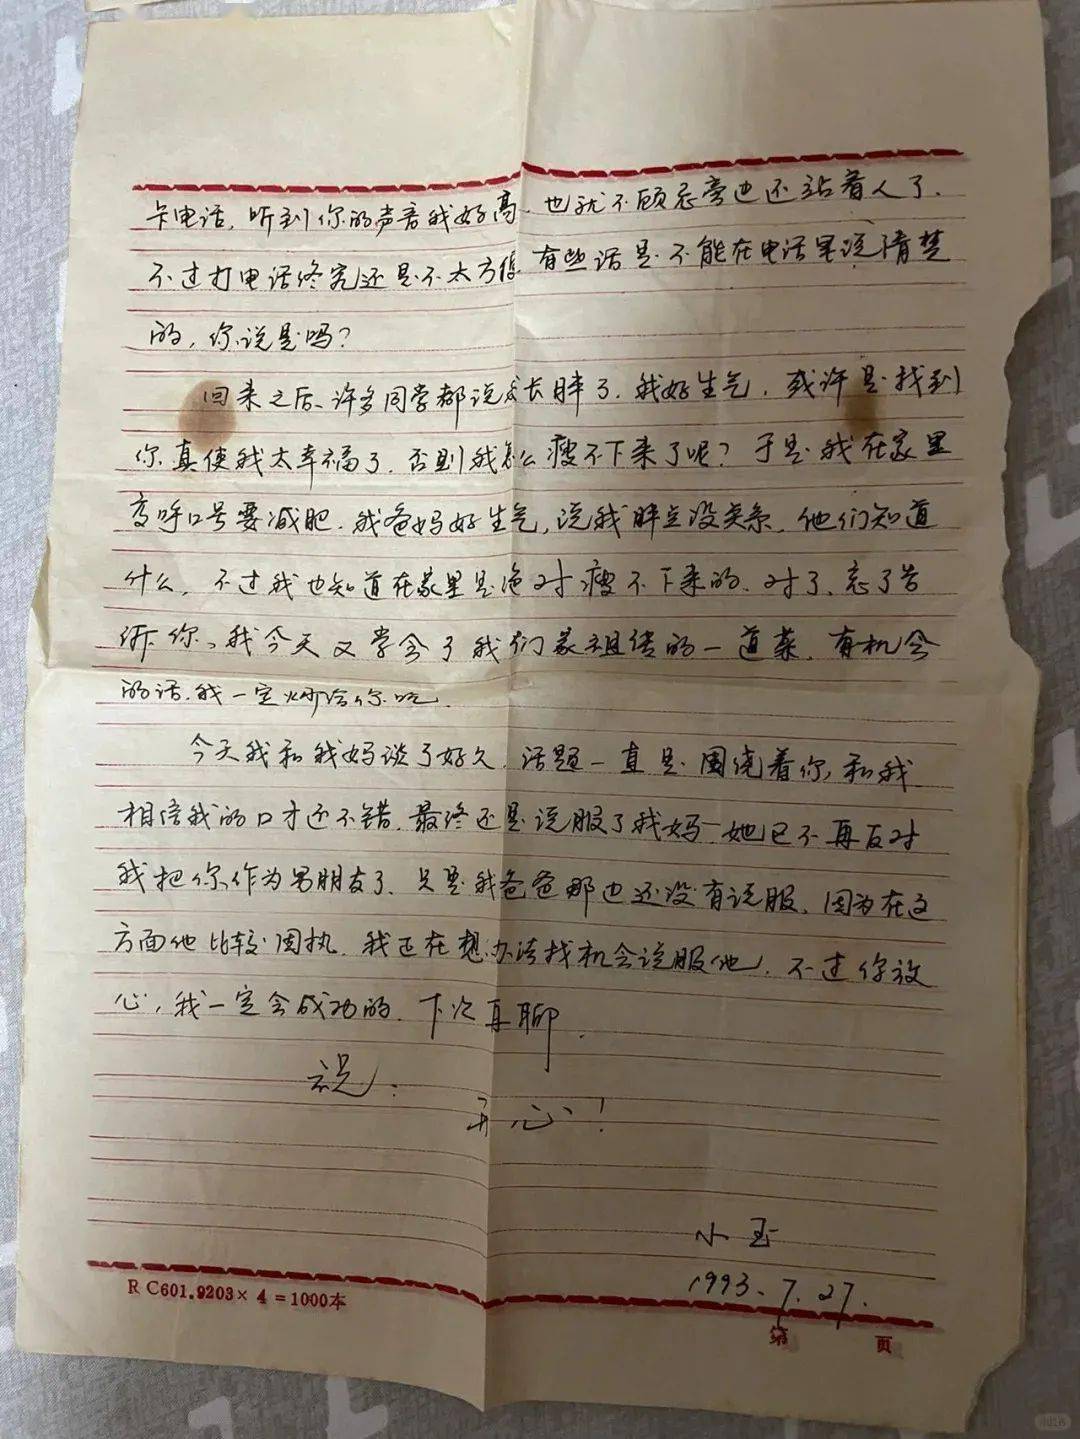 卡电话，听到你的声音我好高，也就不顾忌旁边还站着人了．
不过打电话终究还是不太方便，有些话是不能在电话里说清楚
的，你说是吗？
回来之后、许多同学都说我长胖了．我好生气．或许是找到
你真使我太幸福了．否则我怎么瘦不下来了呢？于是我在家里
高呼口号要减肥．我爸妈好生气，说我胖点没关系．他们知道
什么．不过我也知道在家里是绝对瘦不下来的．对了、忘了告
诉你，我今天又学会了我们家祖传的一道菜．有机会
的话．我一定炒给你吃．
今天我和我妈谈了好久．话题一直是围绕着你，和我．
相信我的口才还不错．最终还是说服了我妈．她已不再反对
我把你作为男朋友了．只是我爸爸那边还没有说服．因为在这
方面他比较固执．我正在想办法找机会说服他．不过你放
心，我一定会成功的．下次再聊．
祝：
开心！
小玉
1993.7.27.
R C601.9203×4=1000本
第 页
小红书